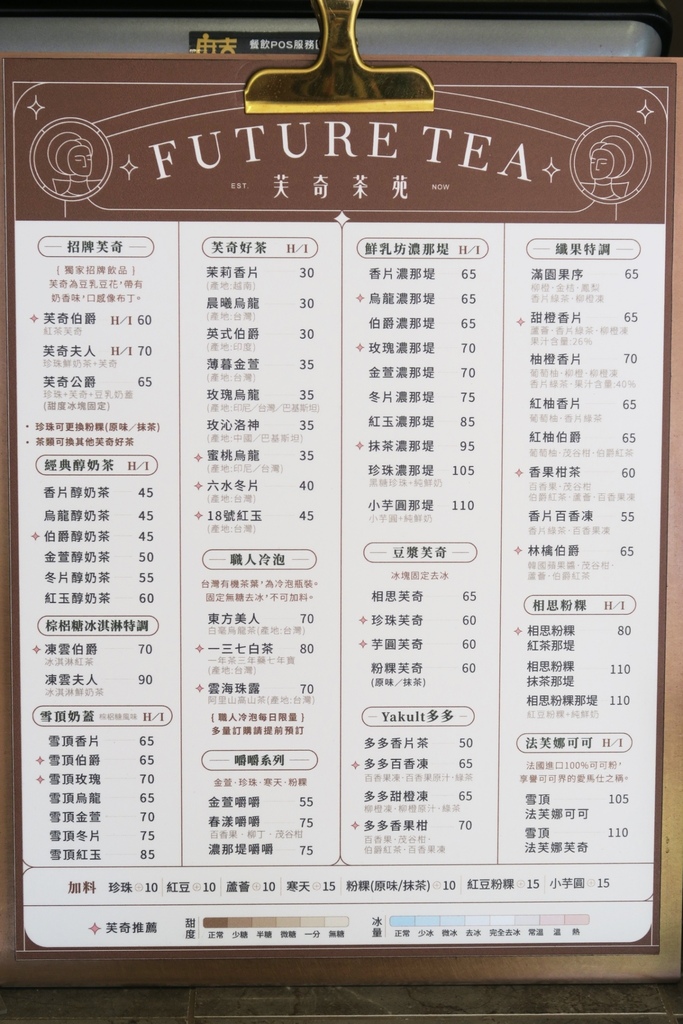 餐飲POS服務
FUTURE TEA
EST. 芙奇茶苑 NOW
招牌芙奇
{ 獨家招牌飲品 }
芙奇為豆乳豆花,帶有
奶香味,口感像布丁。
芙奇伯爵 H/I 60
紅茶芙奇
芙奇夫人 H/I 70
珍珠鮮奶茶+芙奇
芙奇公爵 65
珍珠+芙奇+豆乳奶蓋
(甜度冰塊固定)
• 珍珠可更換粉粿(原味/抹茶)
• 茶類可換其他芙奇好茶
經典醇奶茶 H/I
香片醇奶茶 45
烏龍醇奶茶 45
伯爵醇奶茶 45
金萱醇奶茶 50
冬片醇奶茶 55
紅玉醇奶茶 60
棕梠糖冰淇淋特調
凍雲伯爵 70
冰淇淋紅茶
凍雲夫人 90
冰淇淋鮮奶茶
雪頂奶蓋 棕梠糖風味 H/I
雪頂香片 65
雪頂伯爵 65
雪頂玫瑰 70
雪頂烏龍 65
雪頂金萱 70
雪頂冬片 75
雪頂紅玉 85
芙奇好茶 H/I
茉莉香片 30
(產地:越南)
晨曦烏龍 30
(產地:台灣)
英式伯爵 30
(產地:印度)
薄暮金萱 35
(產地:台灣)
玫瑰烏龍 35
(產地:印尼/台灣/巴基斯坦)
玫沁洛神 35
(產地:中國/巴基斯坦)
蜜桃烏龍 35
(產地:印尼/台灣)
六水冬片 40
(產地:台灣)
18號紅玉 45
(產地:台灣)
職人冷泡
台灣有機茶葉,為冷泡瓶裝。
固定無糖去冰,不可加料。
東方美人 70
白毫烏龍茶(產地:台灣)
一三七白茶 80
一年茶三年藥七年寶
(產地:台灣)
雲海珠露 70
阿里山高山茶(產地:台灣)
{ 職人冷泡每日限量 }
多量訂購請提前預訂
嚼嚼系列
金萱·珍珠·寒天·粉粿
金萱嚼嚼 55
春漾嚼嚼 75
百香果·柳丁·茂谷柑
濃那堤嚼嚼 75
鮮乳坊濃那堤 H/I
香片濃那堤 65
烏龍濃那堤 65
伯爵濃那堤 65
玫瑰濃那堤 70
金萱濃那堤 70
冬片濃那堤 75
紅玉濃那堤 85
抹茶濃那堤 95
珍珠濃那堤 105
黑糖珍珠+純鮮奶
小芋圓那堤 110
小芋圓+純鮮奶
豆漿芙奇
冰塊固定去冰
相思芙奇 65
珍珠芙奇 60
芋圓芙奇 60
粉粿芙奇 60
(原味/抹茶)
Yakult多多
多多香片茶 50
多多百香凍 65
百香果凍·百香果原汁·綠茶
多多甜橙凍 65
柳橙凍·柳橙原汁·綠茶
多多香果柑 70
百香果·茂谷柑·
伯爵紅茶·百香果凍
纖果特調
滿園果序 65
柳橙·金桔·鳳梨
香片綠茶·柳橙凍
甜橙香片 65
蘆薈·香片綠茶·柳橙凍
果汁含量:26%
柚橙香片 70
葡萄柚·柳橙·柳橙凍
香片綠茶·果汁含量:40%
紅柚香片 65
葡萄柚·香片綠茶
紅柚伯爵 65
葡萄柚·茂谷柑·伯爵紅茶
香果柑茶 60
百香果·茂谷柑·
伯爵紅茶·蘆薈·百香果凍
香片百香凍 55
香片綠茶·百香果凍
林檎伯爵 65
韓國蘋果醬·茂谷柑·
蘆薈·伯爵紅茶
相思粉粿 H/I
相思粉粿 80
紅茶那堤
相思粉粿 110
抹茶那堤
相思粉粿那堤 110
紅豆粉粿+純鮮奶
法芙娜可可 H/I
法國進口100%可可粉,
享譽可可界的愛馬仕之稱。
雪頂 105
法芙娜可可
雪頂 110
法芙娜芙奇
加料 珍珠+10 紅豆+10 蘆薈+10 寒天+15 粉粿(原味/抹茶)+10 紅豆粉粿+15 小芋圓+15
芙奇推薦 甜度 正常 少糖 半糖 微糖 一分 無糖 冰量 正常 少冰 微冰 去冰 完全去冰 常溫 溫 熱